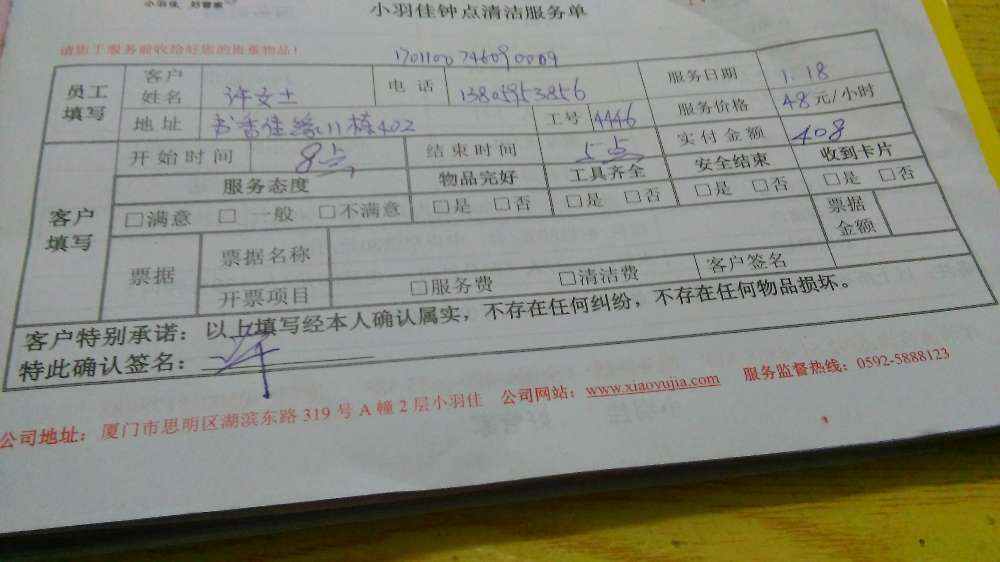 小羽佳 好管家
小羽佳钟点清洁服务单
请您于服务前收给好您的贵重物品!
1701100746090009
员工填写 客户姓名 许女士 电话 13805953856 服务日期 1.18
地址 书香佳缘11栋402 工号 4446 服务价格 48元/小时
客户填写 开始时间 8点 结束时间 5点 实付金额 408
服务态度 物品完好 工具齐全 安全结束 收到卡片
□满意 □一般 □不满意 □是 □否 □是 □否 □是 □否 □是 □否
票据 票据名称 票据金额
开票项目 □服务费 □清洁费 客户签名
客户特别承诺:以上填写经本人确认属实,不存在任何纠纷,不存在任何物品损坏。
特此确认签名:许
公司地址:厦门市思明区湖滨东路 319 号 A 幢 2 层小羽佳 公司网站:www.xiaoyujia.com 服务监督热线:0592-5888123